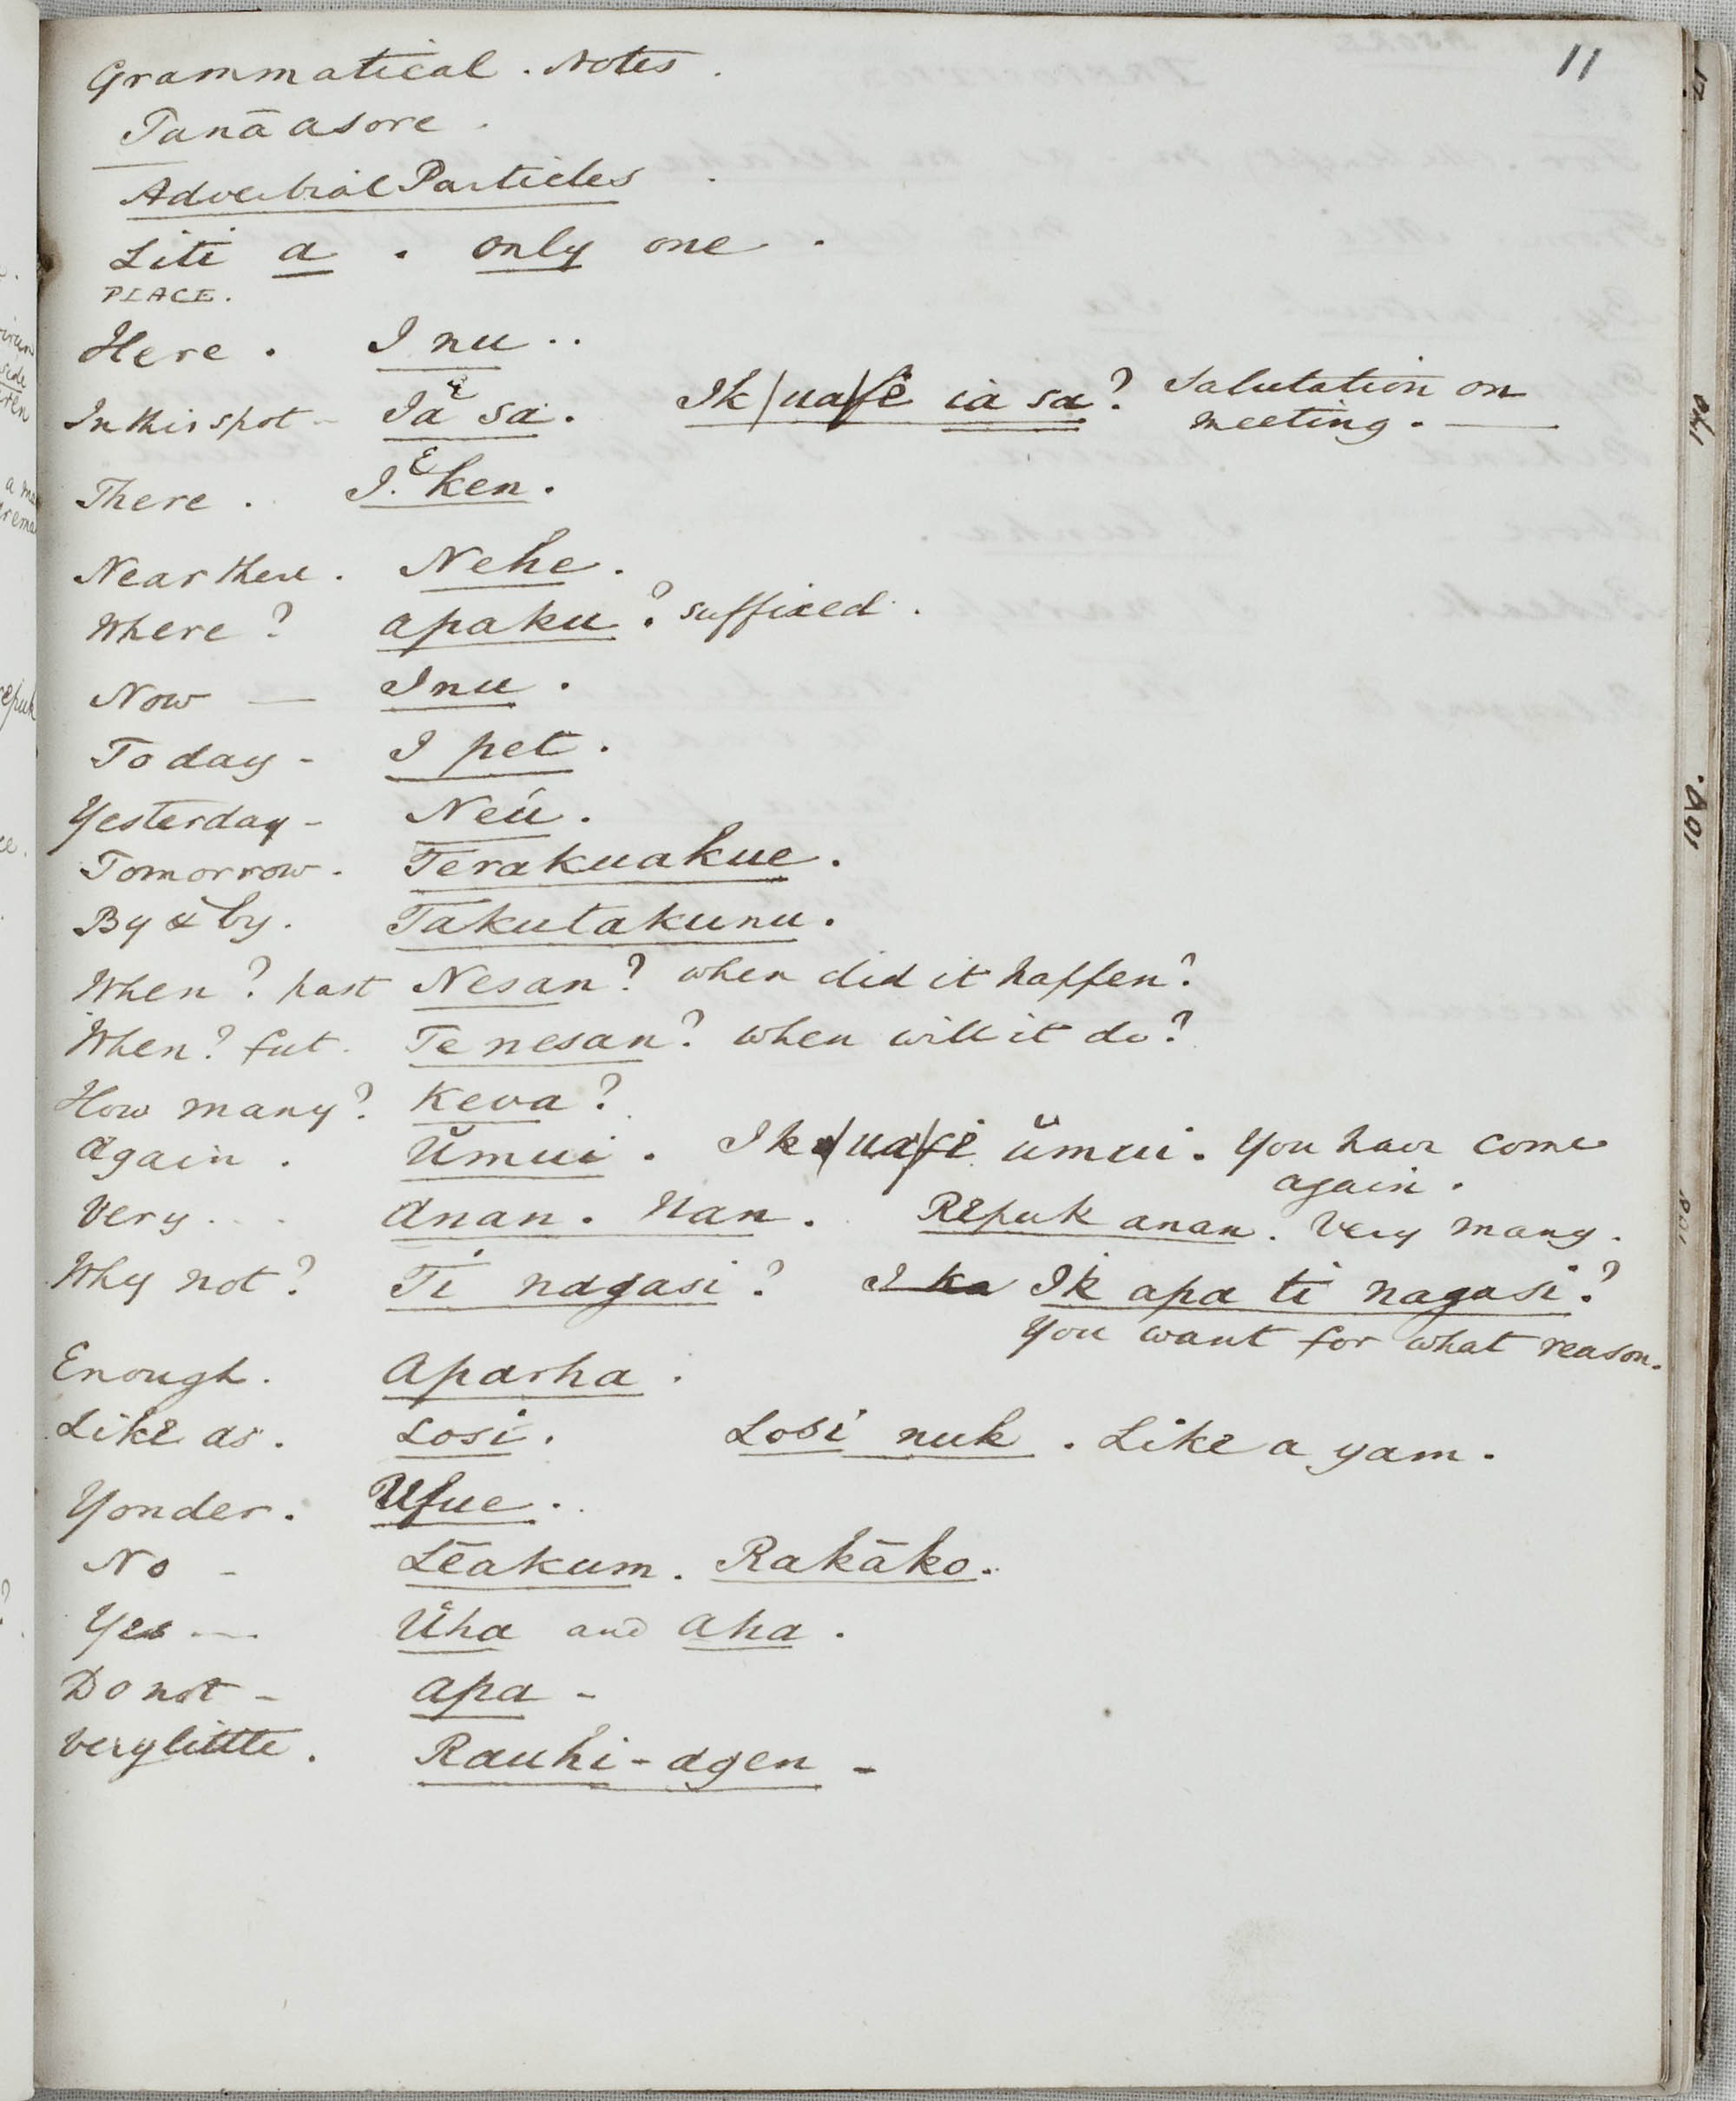 11
Grammatical. Notes.
Tanāasore.
Adverbial Particles.
Liti a. only one.
PLACE.
Here. I nu..
In this spot - Ia sa. Ik/ua/fe ia sa? Salutation on
meeting. —
There. I. ken.
Near there. Nehe.
Where? apaku? suffixed.
Now — Inu.
Today - I pet.
Yesterday - Neü.
Tomorrow. Terakuakue.
By & by. Takutakunu.
When? past Nesan? when did it happen?
When? fut. Te nesan? when will it do?
How many? Keva?
Again. Ümui. Ik/ua/fe ümui. You have come
again.
Very.. Anan. Nan. Repuk anan. Very many.
Why not? Ti nagasi? I ka Ik apa ti nagasi?
You want for what reason.
Enough. Aparha.
Like as. Losi. Losi nuk. Like a yam.
Yonder. Ufue.
No - Lēakum. Rakāko.
Yes — Üha and aha.
Do not - apa -
Very little. Rauhi-agen -